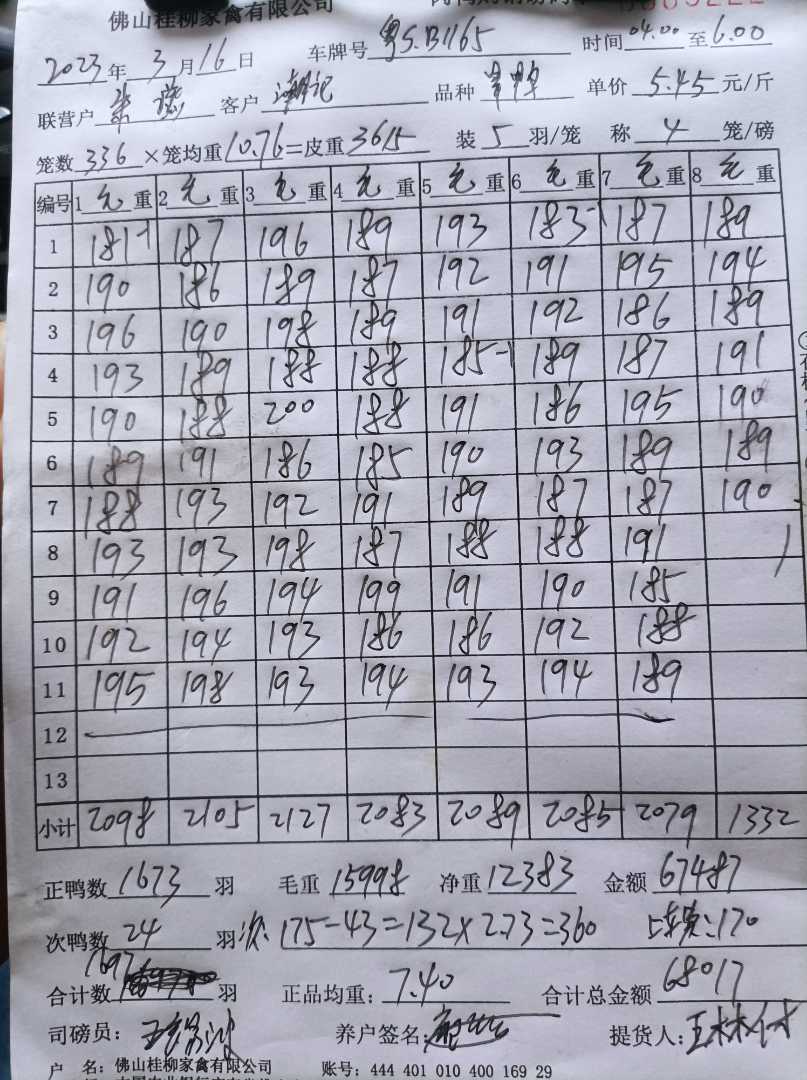 佛山桂柳家禽有限公司
2023年3月16日 车牌号 粤S.B1165 时间 04.00 至 6.00
联营户 客户 品种 单价 5.45 元/斤
笼数 336 ×笼均重 10.76 =皮重 3615 装 5 羽/笼 称 4 笼/磅
编号 1 毛 重 2 毛 重 3 毛 重 4 毛 重 5 毛 重 6 毛 重 7 毛 重 8 毛 重
1 181-1 187 196 189 193 183-1 187 189
2 190 186 189 187 192 191 195 194
3 196 190 198 189 191 192 186 189
4 193 189 188 188 185-1 189 187 191
5 190 188 200 188 191 186 195 190
6 189 191 186 185 190 193 189 189
7 188 193 192 191 189 187 187 190
8 193 193 198 187 188 188 191
9 191 196 194 199 191 190 185
10 192 194 193 186 186 192 188
11 195 198 193 194 193 194 189
12
13
小计 2098 2105 2127 2083 2089 2085 2079 1332
正鸭数 1673 羽 毛重 15998 净重 12383 金额 67487
次鸭数 24 羽 次: 175-43=132×2.73=360 :170
合计数 1697 羽 正品均重: 7.40 合计总金额 68017
司磅员: 养户签名: 提货人:
户 名: 佛山桂柳家禽有限公司 账号: 444 401 010 400 169 29